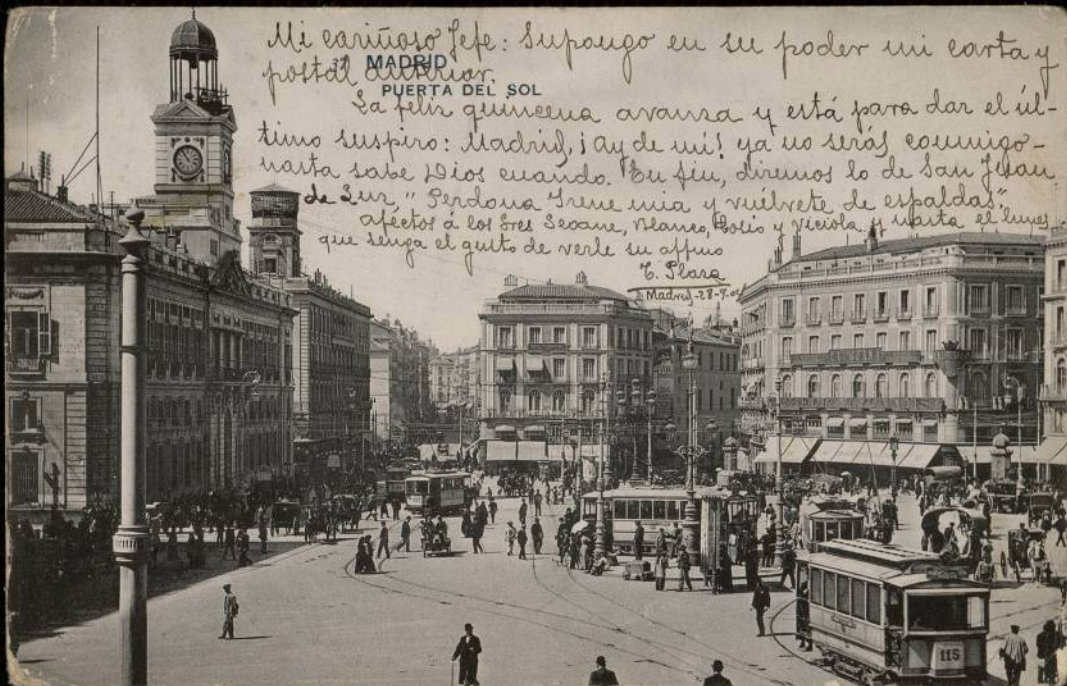 Mi cariñoso Jefe: Supongo en su poder mi carta y
postal anterior.
MADRID
PUERTA DEL SOL
La feliz quincena avanza y está para dar el úl-
timo suspiro: Madrid, ¡ay de mi! ya no serás conmigo-
hasta sabe Dios cuando. En fin, diremos lo de San Juan
de Luz, "Perdona Irene mia y vuélvete de espaldas".
Afectos á los Sres Seoane, Blanco, Cosio y Viciola, y hasta el lunes
que tenga el gusto de verle su affmo
T. Plaza
Madrid-28-9-
115